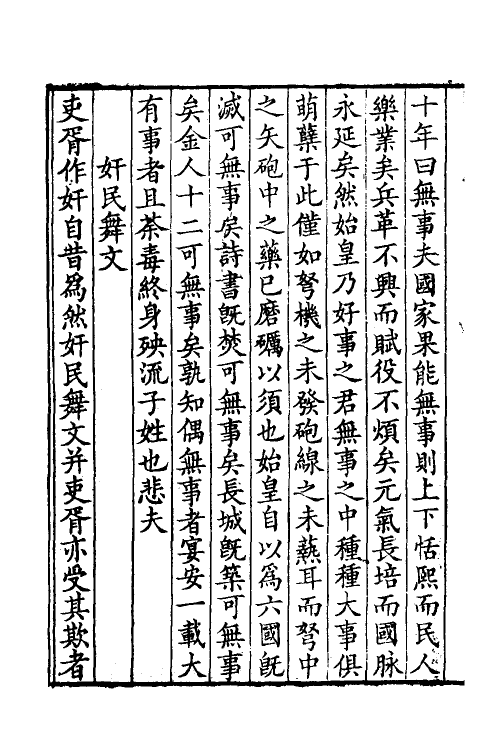 十年曰無事夫國家果能無事則上下恬熈而民人
樂業矣兵革不興而賦役不煩矣元氣長培而國脉
永延矣然始皇乃好事之君無事之中種種大事俱
萌蘖于此僅如弩機之未發砲線之未爇耳而弩中
之矢砲中之藥已磨礪以須也始皇自以為六國旣
滅可無事矣詩書旣焚可無事矣長城旣築可無事
矣金人十二可無事矣孰知偶無事者宴安一載大
有事者且荼毒終身殃流子姓也悲夫
奸民舞文
吏胥作奸自昔為然奸民舞文并吏胥亦受其欺者